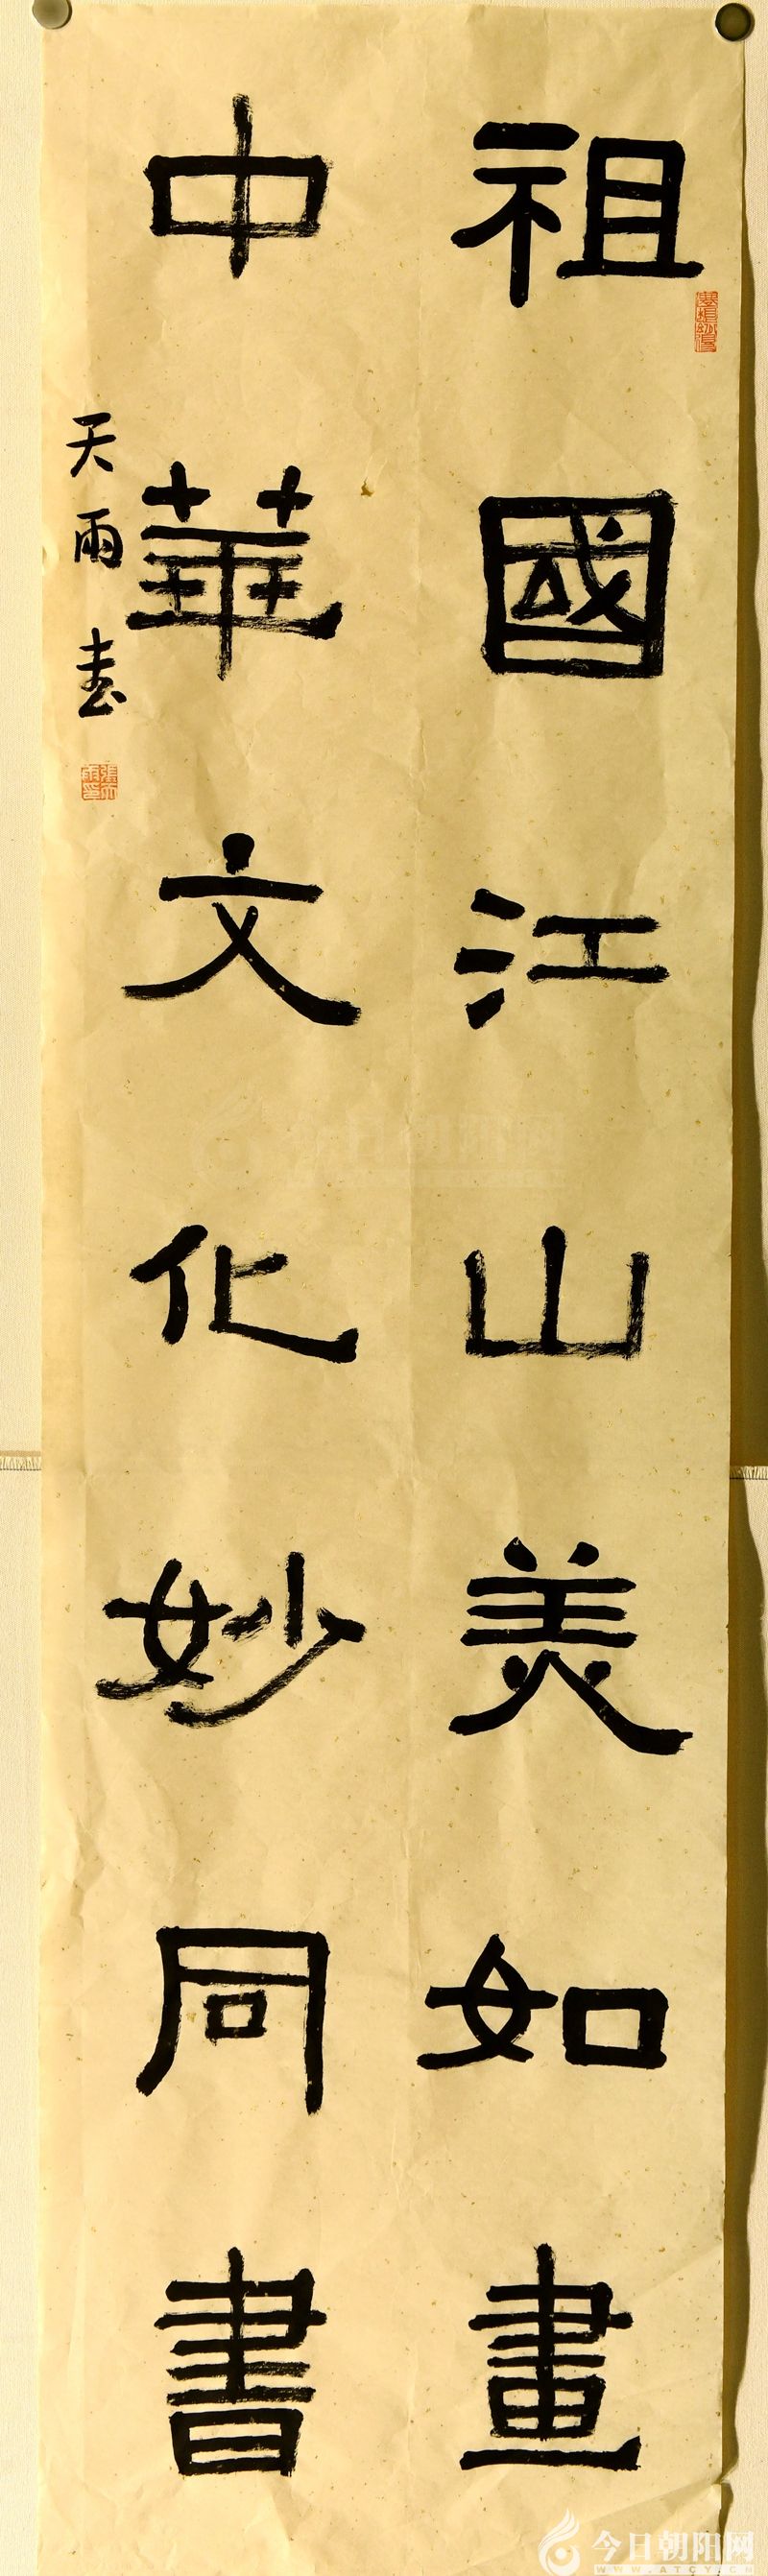 祖國江山美如畫
中華文化妙同書
天雨书
今日朝阳网
WWW.ATCY.CN